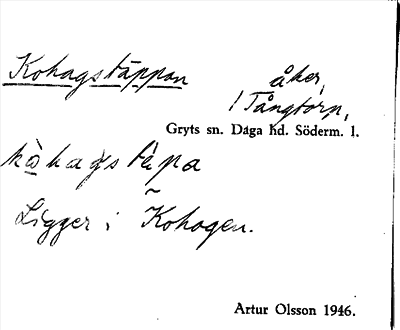 Kohagstäppan åker,
i Tångtorp,
Gryts sn. Daga hd. Söderm. l.
kòhagstàpa
Ligger i Kohagen.
Artur Olsson 1946.